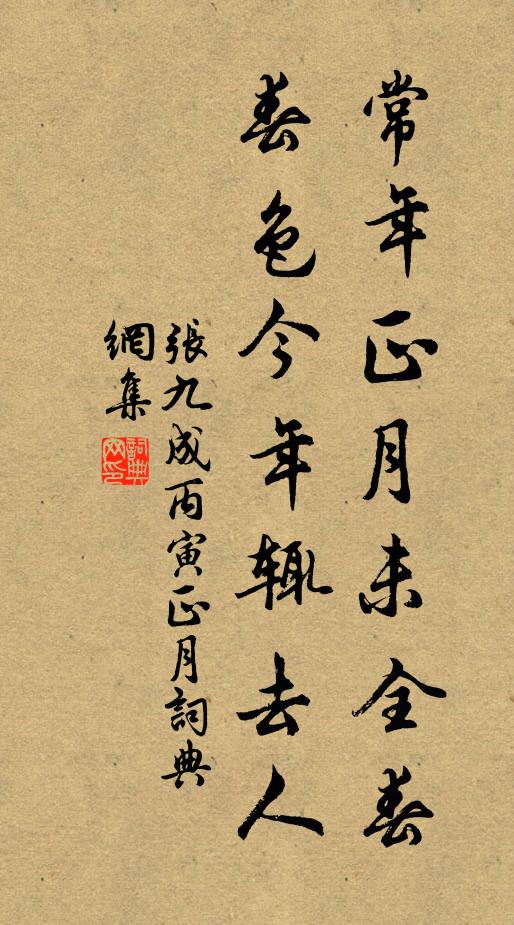 常年正月未全春
春色今年輒去人
張九成丙寅正月詞典
網集
詞典
网印